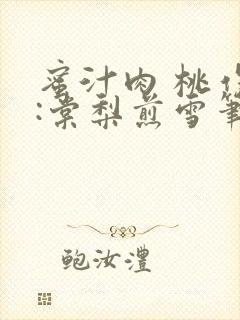 蜜汁肉桃作
:棠梨煎雪筆
鲍汝澧